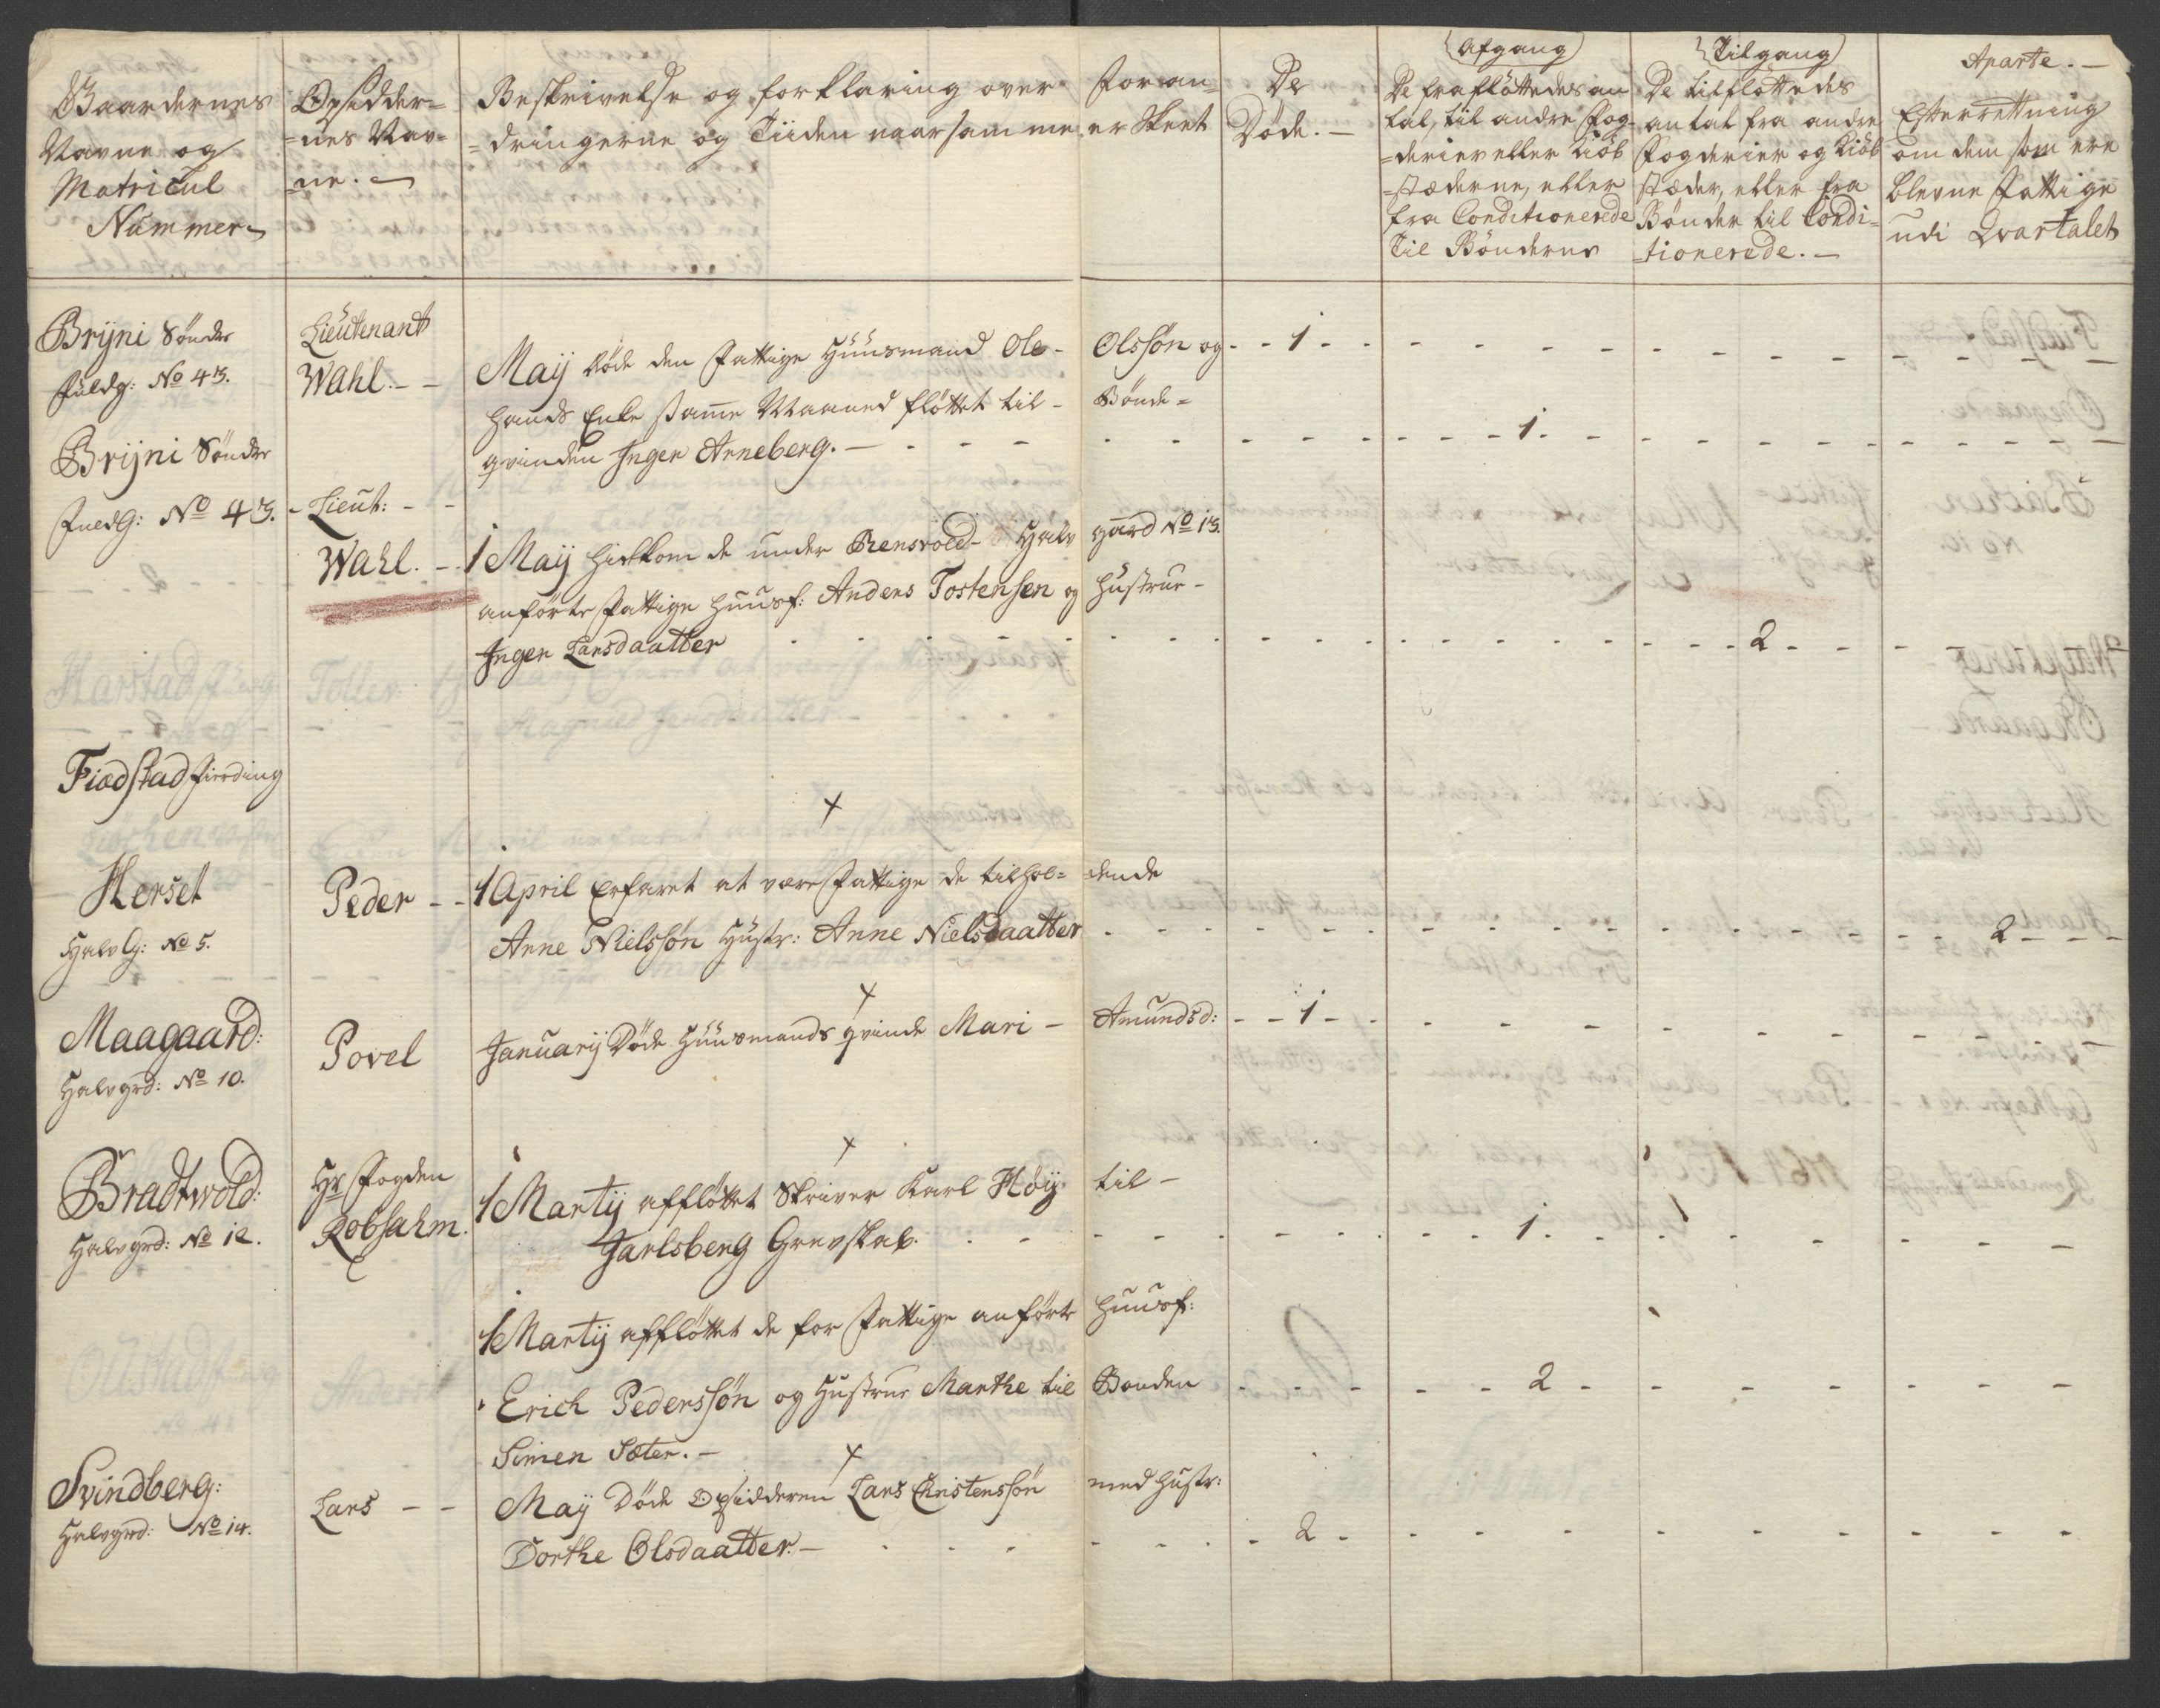 Gaardernes
Navne og
Matricul
Nummer
Opsidder=
=nes Nav=
ne.
Beskrivelse og forklaring over foran=
=dringerne og Tiiden naar samme er skeet
De
Døde.
Afgang
De frafløttedes an
tal, til andre Fog=
=derier eller Kiøb
=stæderne, eller
fra Conditionerede
til Bønderne
Tilgang
De tilfløttedes
antal fra andre
Fogderier og Kiøb
stæder, eller fra
Bønder til Condi=
=tionerede.
Aparte.
Efterretning
om dem som ere
blevne Fattige
udi Qvartalet
Brÿni Sønder
Fuldg: No 43.
Lieutenant
Wahl.
Maÿ døde den Fattige Huusmand Ole Olssøn og - 1
hands Enke samme Maaned fløttet til Bønde=
qvinden Inger Arneberg. - 1
Brÿni Sønder
FuldG: No 43.
Lieut:
Wahl.
1 Maÿ hidkom de under Rensvold Halv gård No 13.
anførte Fattige huusf: Anders Tostensen og hustrue
Inger Larsdaatter - 2
Fiædstad Fierding
Herset
HalvG: No 5.
Peder
1 April Erfaret at være Fattige de tilhol= =dende
Arne Nielssøn Hustr: Anne Nielsdaatter - 2
Maagaard:
Halvgrd: No 10.
Povel
Januarÿ Døde Huusmands qvinde Mari Amundsd: - 1
Bradtwold:
Halvgrd: No 12.
Hr Fogden
Robsahm.
1 Martÿ affløttet Skriver Karl Høÿ til
Jarlsberg Grevskab. - 1
1 Martÿ affløttet de for Fattige anførte huusf:
Erich Pederssøn og Hustrue Marthe til Bonden - 2
Simen Sæter.
Svindberg:
Halvgrd: No 14.
Lars
Maÿ Døde Opsidderen Lars Christenssøn med hustr:
Dorthe Olsdaatter. - 2